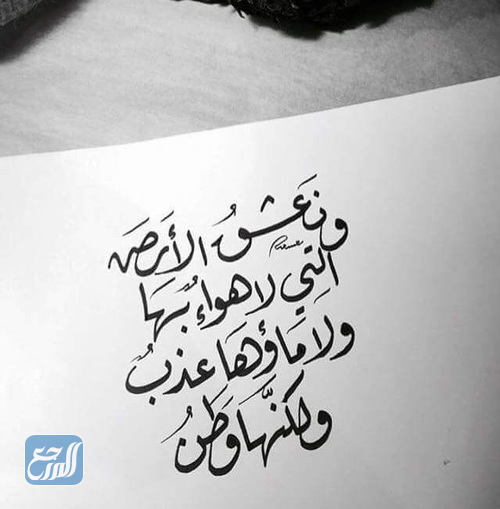 ونَعشقُ الأَرضَ
التِي لا هواءٌ بهَا
ولا مَاؤهَا عذبٌ
ولكنَّها وَطنُ
المرجع